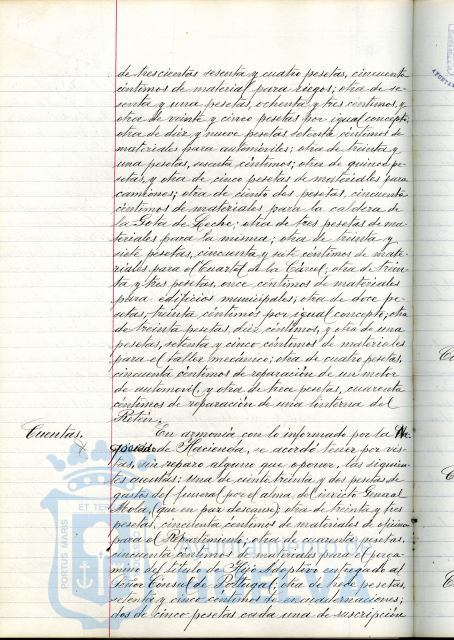 de trescientas sesenta y cuatro pesetas, cincuenta
céntimos de material para riegos; otra de se-
senta y una pesetas, ochenta y tres céntimos, y
otra de veinte y cinco pesetas por igual concepto;
otra de diez y nueve pesetas setenta céntimos de
materiales para automóviles; otra de treinta y
una pesetas, sesenta céntimos; otra de quince pe-
setas, y otra de cinco pesetas de materiales para
camiones; otra de ciento dos pesetas, cincuenta
céntimos de materiales para la caldera de
la Gota de Leche; otra de tres pesetas de ma-
teriales para la misma; otra de treinta y
siete pesetas, cincuenta y siete céntimos de mate-
riales para el Cuartel de la Cárcel; otra de trein-
ta y tres pesetas, once céntimos de materiales
para edificios municipales; otra de doce pe-
setas, treinta céntimos por igual concepto; otra
de treinta pesetas, diez céntimos, y otra de una
pesetas, setenta y cinco céntimos de materiales
para el taller mecánico; otra de cuatro pesetas,
cincuenta céntimos de reparación de un motor
de automóvil, y otra de trece pesetas, cuarenta
céntimos de reparación de una linterna del
Retén.
Cuentas.
En armonía con lo informado por la
de Hacienda, se acordó tener por vis-
tas, sin reparo alguno que oponer, las siguien-
tes cuentas: Una de ciento treinta y dos pesetas de
gastos del funeral por el alma del invicto General
Mola, (que en paz descanse); otra de treinta y tres
pesetas, cincuenta céntimos de materiales de oficina
para el Repartimiento; otra de cuarenta pesetas,
cincuenta céntimos de materiales para el perga-
mino del título de Hijo Adoptivo entregado al
Señor Cónsul de Portugal; otra de siete pesetas,
setenta y cinco céntimos de encuadernaciones;
dos de cinco pesetas cada una de suscripción
PORTUS MARIS